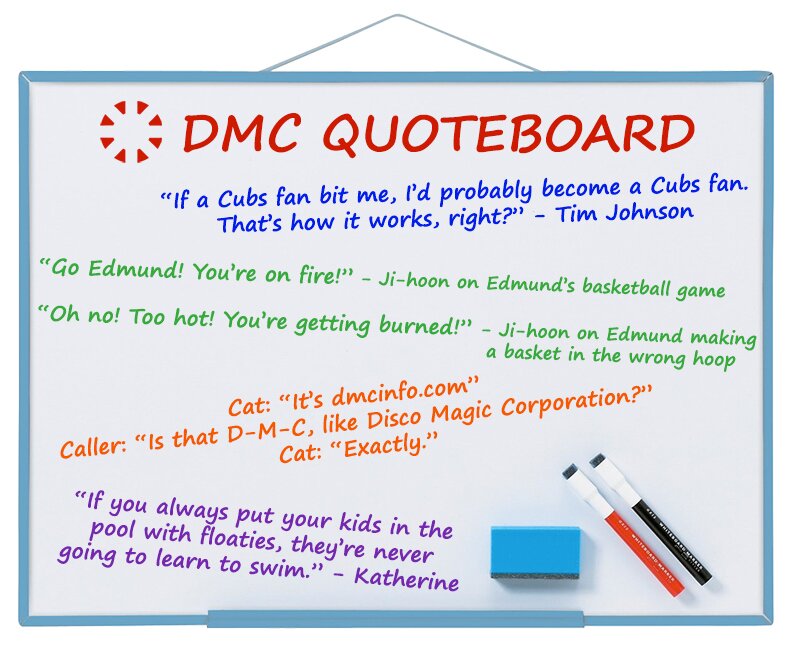 DMC QUOTEBOARD
“If a Cubs fan bit me, I’d probably become a Cubs fan.
That’s how it works, right?” – Tim Johnson
“Go Edmund! You’re on fire!” – Ji-hoon on Edmund’s basketball game
“Oh no! Too hot! You’re getting burned!” – Ji-hoon on Edmund making
a basket in the wrong hoop
Cat: “It’s dmcinfo.com”
Caller: “Is that D-M-C, like Disco Magic Corporation?”
Cat: “Exactly.”
“If you always put your kids in the
pool with floaties, they’re never
going to learn to swim.” – Katherine